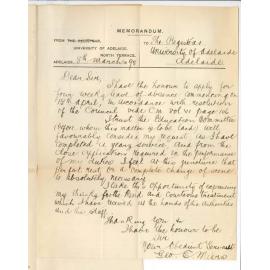 MEMORANDUM.
FROM THE REGISTRAR,
UNIVERSITY OF ADELAIDE,
NORTH TERRACE,
ADELAIDE, 8th March 1898
To The Registrar
University of Adelaide
Adelaide
Dear Sir,
I have the honour to apply for
four weeks leave of absence commencing on
18th April, in accordance with resolution
of the Council Vide C.M. Vol VI page 106
I trust the Education Committee
(before whom this matter is to be laid) will
favourably consider my request as I have
completed years service. And from the
close application required in the performance
of my duties I feel at this juncture that
perfect rest or a complete change of scene
is absolutely necessary
I take this opportunity of expressing
my thanks for the kind and courteous treatment
which I have received at the hands of the authorities
and the staff
Thanking you
I have the honour to be
Sir
Your Obedient Servant
Geo.